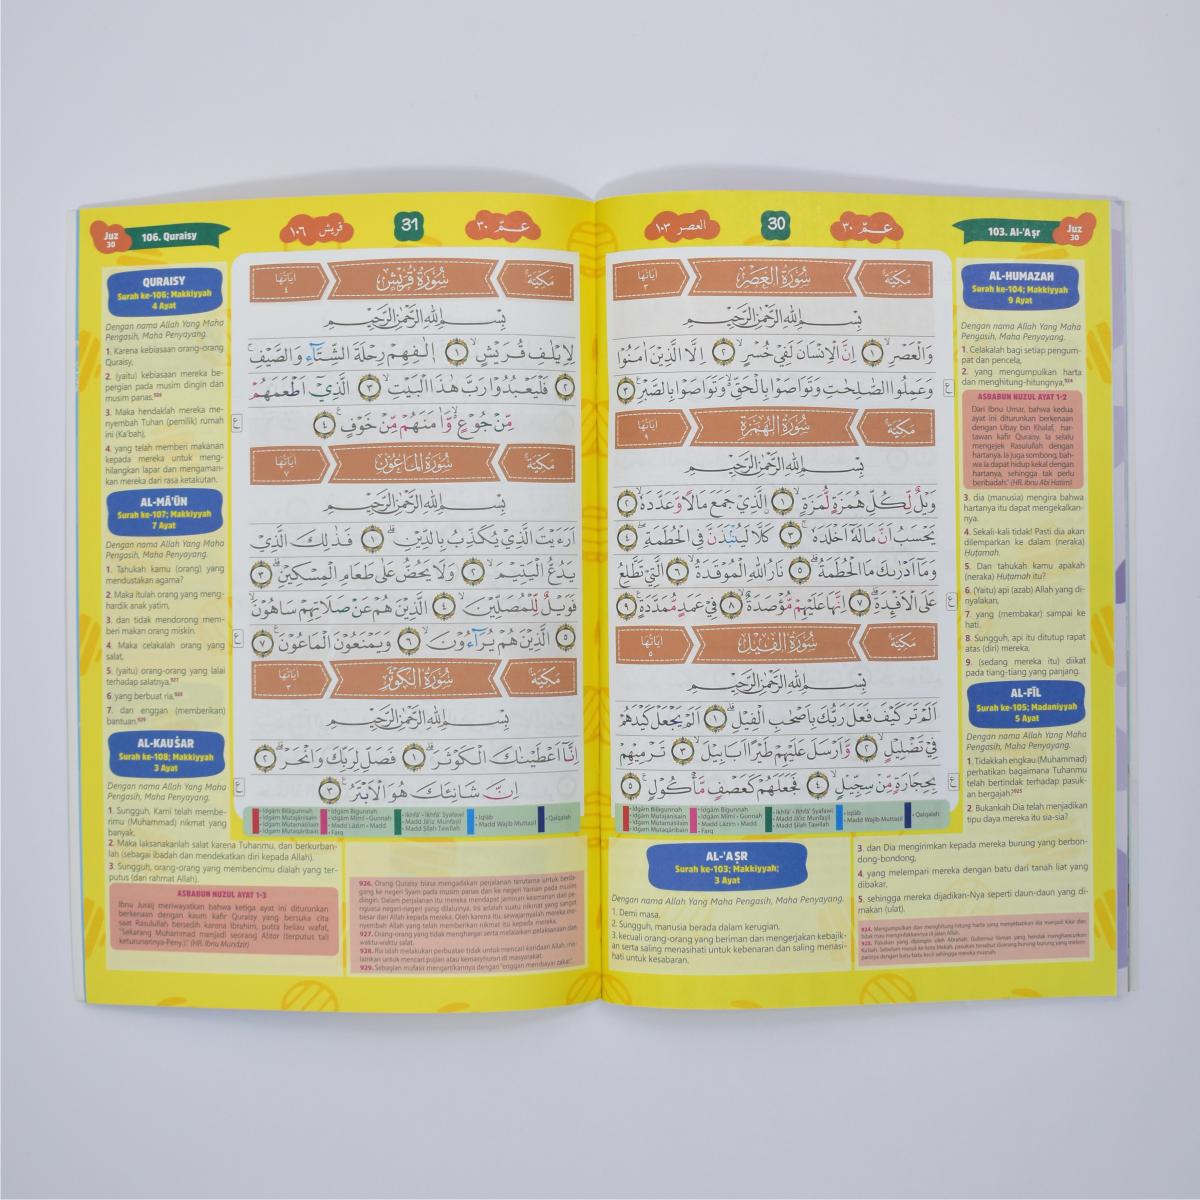 Juz
30
106. Quraisy
قريش ١٠٦
31
عمّ ٣٠
QURAISY
Surah ke-106; Makkiyyah
4 Ayat
Dengan nama Allah Yang Maha
Pengasih, Maha Penyayang.
1. Karena kebiasaan orang-orang
Quraisy,
2. (yaitu) kebiasaan mereka be-
pergian pada musim dingin dan
musim panas.⁹²⁶
3. Maka hendaklah mereka me-
nyembah Tuhan (pemilik) rumah
ini (Ka'bah),
4. yang telah memberi makanan
kepada mereka untuk meng-
hilangkan lapar dan mengaman-
kan mereka dari rasa ketakutan.
AL-MĀ'ŪN
Surah ke-107; Makkiyyah
7 Ayat
Dengan nama Allah Yang Maha
Pengasih, Maha Penyayang.
1. Tahukah kamu (orang) yang
mendustakan agama?
2. Maka itulah orang yang meng-
hardik anak yatim,
3. dan tidak mendorong mem-
beri makan orang miskin.
4. Maka celakalah orang yang
salat,
5. (yaitu) orang-orang yang lalai
terhadap salatnya,⁹²⁷
6. yang berbuat ria,⁹²⁸
7. dan enggan (memberikan)
bantuan.⁹²⁹
AL-KAUṠAR
Surah ke-108; Makkiyyah
3 Ayat
Dengan nama Allah Yang Maha
Pengasih, Maha Penyayang.
1. Sungguh, Kami telah membe-
rimu (Muhammad) nikmat yang
banyak.
2. Maka laksanakanlah salat karena Tuhanmu, dan berkurban-
lah (sebagai ibadah dan mendekatkan diri kepada Allah).
3. Sungguh, orang-orang yang membencimu dialah yang ter-
putus (dari rahmat Allah).
مكيّة سُوْرَةُ قُرَيْشٍ اٰيَاتُهَا ٤
بِسْمِ اللّٰهِ الرَّحْمٰنِ الرَّحِيْمِ
لِاِيْلٰفِ قُرَيْشٍۙ ١ اٖلٰفِهِمْ رِحْلَةَ الشِّتَاۤءِ وَالصَّيْفِۚ
٢ فَلْيَعْبُدُوْا رَبَّ هٰذَا الْبَيْتِۙ ٣ الَّذِيْٓ اَطْعَمَهُمْ
مِّنْ جُوْعٍ ەۙ وَّاٰمَنَهُمْ مِّنْ خَوْفٍ ࣖ ٤
مكيّة سُوْرَةُ الْمَاعُوْنِ اٰيَاتُهَا ٧
بِسْمِ اللّٰهِ الرَّحْمٰنِ الرَّحِيْمِ
اَرَءَيْتَ الَّذِيْ يُكَذِّبُ بِالدِّيْنِۗ ١ فَذٰلِكَ الَّذِيْ
يَدُعُّ الْيَتِيْمَۙ ٢ وَلَا يَحُضُّ عَلٰى طَعَامِ الْمِسْكِيْنِۗ ٣
فَوَيْلٌ لِّلْمُصَلِّيْنَۙ ٤ الَّذِيْنَ هُمْ عَنْ صَلَاتِهِمْ سَاهُوْنَۙ
٥ الَّذِيْنَ هُمْ يُرَاۤءُوْنَۙ ٦ وَيَمْنَعُوْنَ الْمَاعُوْنَ ࣖ ٧
مكيّة سُوْرَةُ الْكَوْثَرِ اٰيَاتُهَا ٣
بِسْمِ اللّٰهِ الرَّحْمٰنِ الرَّحِيْمِ
اِنَّآ اَعْطَيْنٰكَ الْكَوْثَرَۗ ١ فَصَلِّ لِرَبِّكَ وَانْحَرْۗ ٢
اِنَّ شَانِئَكَ هُوَ الْاَبْتَرُ ࣖ ٣
• Idgām Bilāgunnah
• Idgām Mutajānisain
• Idgām Mutamāṡilain
• Idgām Mutaqāribain
• Idgām Bigunnah
• Idgām Mīmī • Gunnah
• Madd Lāzim • Madd
Farq
• Ikhfā' • Ikhfā' Syafawī
• Madd Jā'iz Munfaṣil
• Madd Ṣilah Tawīlah
• Iqlāb
• Madd Wajib Muttaṣil
• Qalqalah
ASBABUN NUZUL AYAT 1-3
Ibnu Juraij meriwayatkan bahwa ketiga ayat ini diturunkan
berkenaan dengan kaum kafir Quraisy yang bersuka cita
saat Rasulullah bersedih karena Ibrahim, putra beliau wafat,
"Sekarang Muhammad menjadi seorang Abtar (terputus tali
keturunannya-Peny.)." (HR. Ibnu Mundzir)
926. Orang Quraisy biasa mengadakan perjalanan terutama untuk berda-
gang ke negeri Syam pada musim panas dan ke negeri Yaman pada musim
dingin. Dalam perjalanan itu mereka mendapat jaminan keamanan dari pe-
nguasa negeri-negeri yang dilaluinya. Ini adalah suatu nikmat yang sangat
besar dari Allah kepada mereka. Oleh karena itu, sewajarnyalah mereka me-
nyembah Allah yang telah memberikan nikmat itu kepada mereka.
927. Orang-orang yang tidak menghargai serta melalaikan pelaksanaan dan
waktu-waktu salat.
928. Ria ialah melakukan perbuatan tidak untuk mencari keridaan Allah, me-
lainkan untuk mencari pujian atau kemasyhuran di masyarakat.
929. Sebagian mufasir mengartikannya dengan "enggan membayar zakat".
العصر ١٠٣
30
عمّ ٣٠
103. Al-'Aṣr
Juz
30
مكيّة سُوْرَةُ الْعَصْرِ اٰيَاتُهَا ٣
بِسْمِ اللّٰهِ الرَّحْمٰنِ الرَّحِيْمِ
وَالْعَصْرِۙ ١ اِنَّ الْاِنْسَانَ لَفِيْ خُسْرٍۙ ٢ اِلَّا الَّذِيْنَ اٰمَنُوْا
وَعَمِلُوا الصّٰلِحٰتِ وَتَوَاصَوْا بِالْحَقِّ ەۙ وَتَوَاصَوْا بِالصَّبْرِ ࣖ ٣
مكيّة سُوْرَةُ الْهُمَزَةِ اٰيَاتُهَا ٩
بِسْمِ اللّٰهِ الرَّحْمٰنِ الرَّحِيْمِ
وَيْلٌ لِّكُلِّ هُمَزَةٍ لُّمَزَةٍۙ ١ ۨالَّذِيْ جَمَعَ مَالًا وَّعَدَّدَهٗۙ ٢
يَحْسَبُ اَنَّ مَالَهٗٓ اَخْلَدَهٗۚ ٣ كَلَّا لَيُنْۢبَذَنَّ فِى الْحُطَمَةِۖ ٤
وَمَآ اَدْرٰىكَ مَا الْحُطَمَةُۗ ٥ نَارُ اللّٰهِ الْمُوْقَدَةُۙ ٦ الَّتِيْ تَطَّلِعُ
عَلَى الْاَفْـِٕدَةِۗ ٧ اِنَّهَا عَلَيْهِمْ مُّؤْصَدَةٌۙ ٨ فِيْ عَمَدٍ مُّمَدَّدَةٍ ࣖ ٩
مكيّة سُوْرَةُ الْفِيْلِ اٰيَاتُهَا ٥
بِسْمِ اللّٰهِ الرَّحْمٰنِ الرَّحِيْمِ
اَلَمْ تَرَ كَيْفَ فَعَلَ رَبُّكَ بِاَصْحٰبِ الْفِيْلِۗ ١ اَلَمْ يَجْعَلْ كَيْدَهُمْ
فِيْ تَضْلِيْلٍۙ ٢ وَّاَرْسَلَ عَلَيْهِمْ طَيْرًا اَبَابِيْلَۙ ٣ تَرْمِيْهِمْ
بِحِجَارَةٍ مِّنْ سِجِّيْلٍۙ ٤ فَجَعَلَهُمْ كَعَصْفٍ مَّأْكُوْلٍ ࣖ ٥
• Idgām Bilāgunnah
• Idgām Mutajānisain
• Idgām Mutamāṡilain
• Idgām Mutaqāribain
• Idgām Bigunnah
• Idgām Mīmī • Gunnah
• Madd Lāzim • Madd
Farq
• Ikhfā' • Ikhfā' Syafawī
• Madd Jā'iz Munfaṣil
• Madd Ṣilah Tawīlah
• Iqlāb
• Madd Wajib Muttaṣil
• Qalqalah
AL-'AṢR
Surah ke-103; Makkiyyah;
3 Ayat
Dengan nama Allah Yang Maha Pengasih, Maha Penyayang.
1. Demi masa.
2. Sungguh, manusia berada dalam kerugian,
3. kecuali orang-orang yang beriman dan mengerjakan kebajik-
an serta saling menasihati untuk kebenaran dan saling menasi-
hati untuk kesabaran.
AL-HUMAZAH
Surah ke-104; Makkiyyah
9 Ayat
Dengan nama Allah Yang Maha
Pengasih, Maha Penyayang.
1. Celakalah bagi setiap pengum-
pat dan pencela,
2. yang mengumpulkan harta
dan menghitung-hitungnya,⁹²⁴
ASBABUN NUZUL AYAT 1-2
Dari Ibnu Umar, bahwa kedua
ayat ini diturunkan berkenaan
dengan Ubay bin Khalaf, har-
tawan kafir Quraisy. Ia selalu
mengejek Rasulullah dengan
hartanya. Ia juga sombong, bah-
wa ia dapat hidup kekal dengan
hartanya, sehingga tak perlu
beribadah." (HR. Ibnu Abi Hatim)
3. dia (manusia) mengira bahwa
hartanya itu dapat mengekalkan-
nya.
4. Sekali-kali tidak! Pasti dia akan
dilemparkan ke dalam (neraka)
Ḥuṭamah.
5. Dan tahukah kamu apakah
(neraka) Ḥuṭamah itu?
6. (Yaitu) api (azab) Allah yang di-
nyalakan,
7. yang (membakar) sampai ke
hati.
8. Sungguh, api itu ditutup rapat
atas (diri) mereka,
9. (sedang mereka itu) diikat
pada tiang-tiang yang panjang.
AL-FĪL
Surah ke-105; Madaniyyah
5 Ayat
Dengan nama Allah Yang Maha
Pengasih, Maha Penyayang.
1. Tidakkah engkau (Muhammad)
perhatikan bagaimana Tuhanmu
telah bertindak terhadap pasuk-
an bergajah?⁹²⁵
2. Bukankah Dia telah menjadikan
tipu daya mereka itu sia-sia?
3. dan Dia mengirimkan kepada mereka burung yang berbon-
dong-bondong,
4. yang melempari mereka dengan batu dari tanah liat yang
dibakar,
5. sehingga mereka dijadikan-Nya seperti daun-daun yang di-
makan (ulat).
924. Mengumpulkan dan menghitung-hitung harta yang menyebabkan dia menjadi kikir dan
tidak mau menginfakkannya di jalan Allah.
925. Pasukan yang dipimpin oleh Abrahah, Gubernur Yaman yang hendak menghancurkan
Ka'bah. Sebelum masuk ke kota Mekah, pasukan tersebut diserang burung-burung yang melem-
parinya dengan batu-batu kecil sehingga mereka musnah.